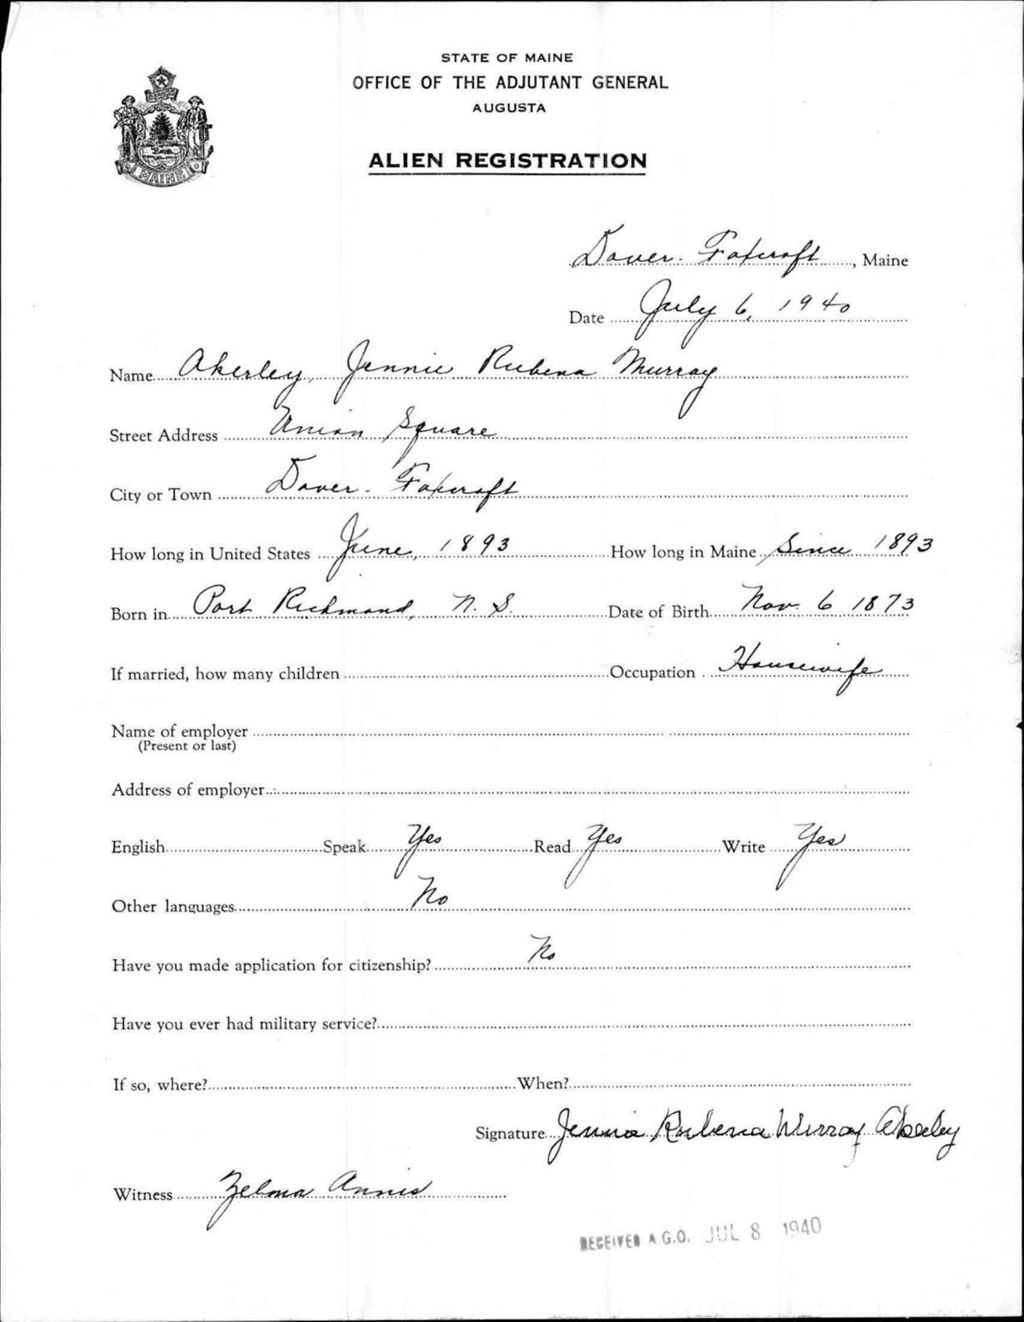 STATE OF MAINE
OFFICE OF THE ADJUTANT GENERAL
AUGUSTA
ALIEN REGISTRATION
MAINE
Dover-Foxcroft, Maine
Date July 6, 1940
Name Akerley, Jennie Rubena Murray
Street Address Union Square
City or Town Dover-Foxcroft
How long in United States June, 1893 How long in Maine Since 1893
Born in Port Richmond, N.S. Date of Birth Nov. 6 1873
If married, how many children Occupation Housewife
Name of employer
(Present or last)
Address of employer
English Speak Yes Read Yes Write Yes
Other languages No
Have you made application for citizenship? No
Have you ever had military service?
If so, where? When?
Signature Jennie Rubena Murray Akerley
Witness Zelma Annis
RECEIVED A.G.O. JUL 8 1940